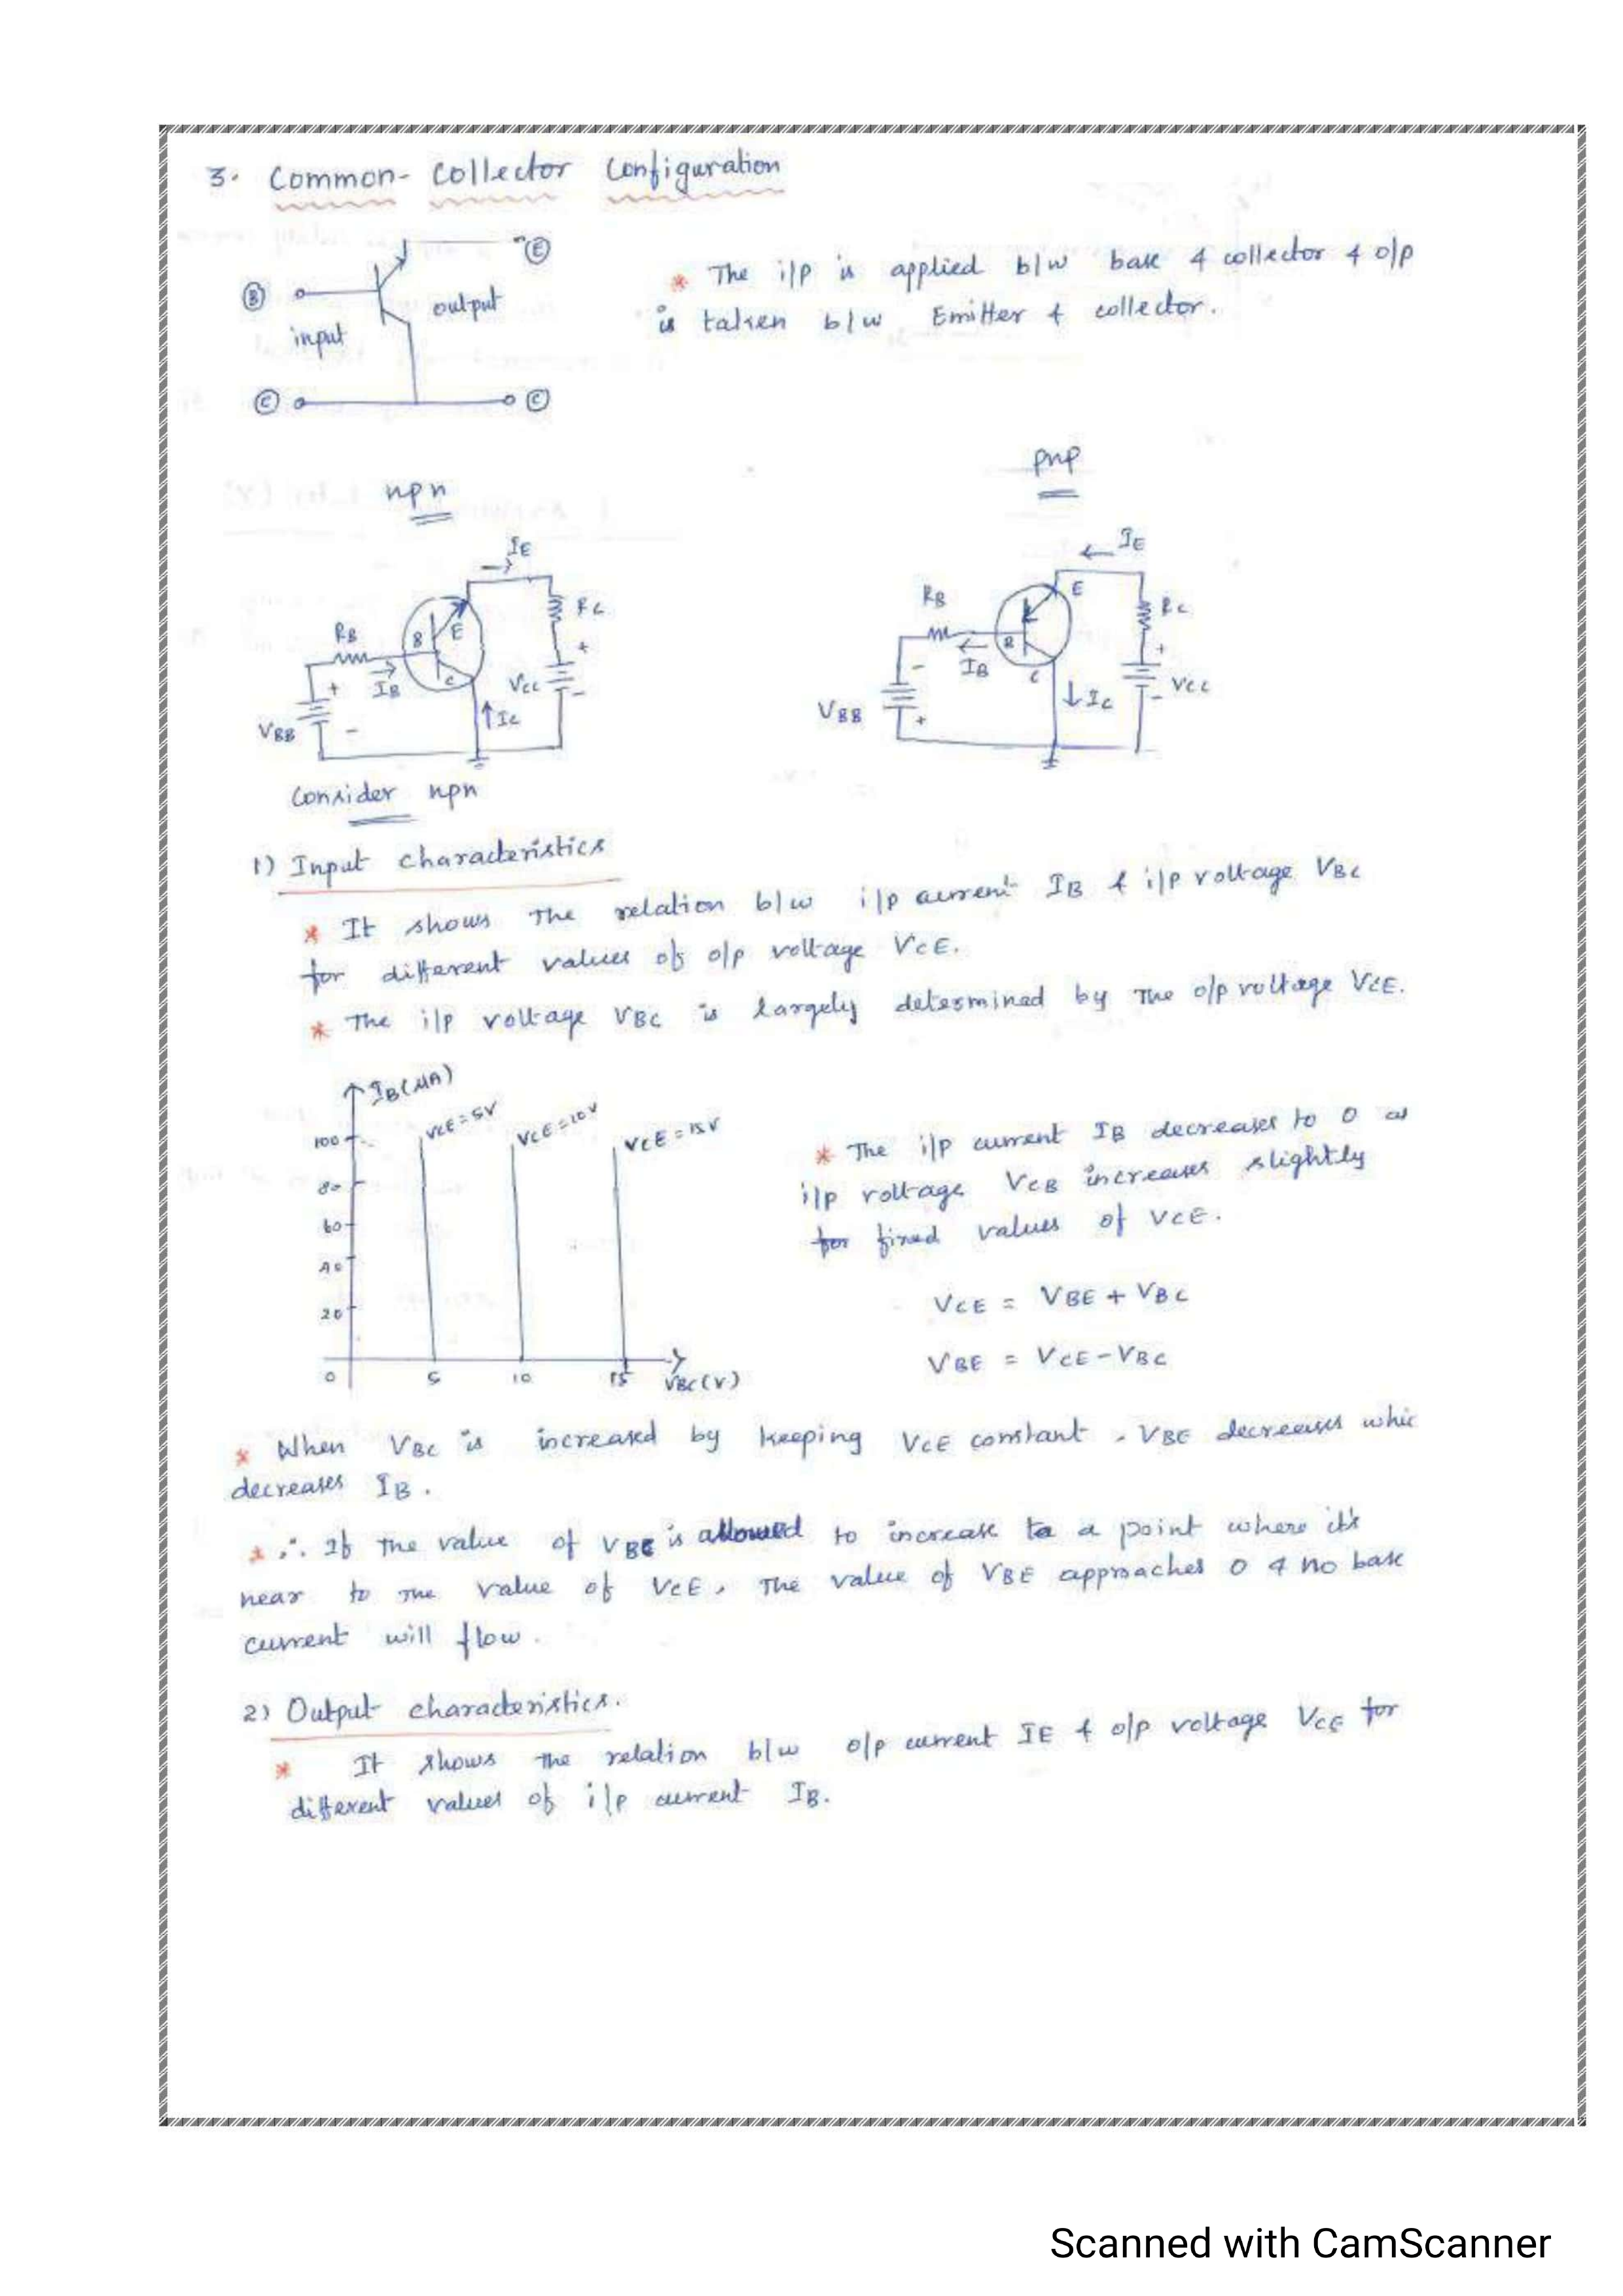 3. Common- Collector Configuration
* The i/p is applied b/w base & collector & o/p
is taken b/w Emitter & collector.
(E)
(B)
output
input
(C)
(C)
npn
pnp
IE
RB
B
E
C
RL
+
IB
+
VCC
-
IC
VBB
-
IE
RB
E
B
C
RL
+
-
IB
IC
- VCC
VBB
+
Consider npn
1) Input characteristics
* It shows the relation b/w i/p current IB & i/p voltage VBC
for different values of o/p voltage VCE.
* The i/p voltage VBC is largely determined by the o/p voltage VCE.
IB(μA)
VCE=5V
VCE=10V
VCE=15V
100
80
60
40
20
0
5
10
15
VBC(V)
* The i/p current IB decreases to 0 as
i/p voltage VCB increases slightly
for fixed values of VCE.
VCE = VBE + VBC
VBE = VCE - VBC
* When VBC is increased by keeping VCE constant, VBE decreases whic
decreases IB.
* ∴ If the value of VBC is allowed to increase to a point where it's
near to the value of VCE, the value of VBE approaches 0 & no base
current will flow.
2) Output characteristics.
* It shows the relation b/w o/p current IE & o/p voltage VCE for
different values of i/p current IB.
Scanned with CamScanner